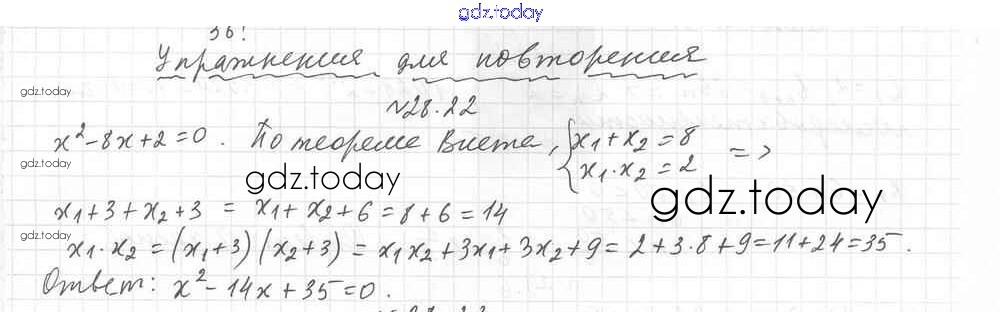 gdz.today
36!
Упражнения для повторения
gdz.today
№28.22
x²-8x+2=0. По теореме Виета, {x₁+x₂=8
x₁·x₂=2 =>
gdz.today
gdz.today
gdz.today
x₁+3+x₂+3 = x₁+x₂+6=8+6=14
gdz.today
x₁·x₂=(x₁+3)(x₂+3)=x₁x₂+3x₁+3x₂+9=2+3·8+9=11+24=35.
Ответ: x²-14x+35=0.